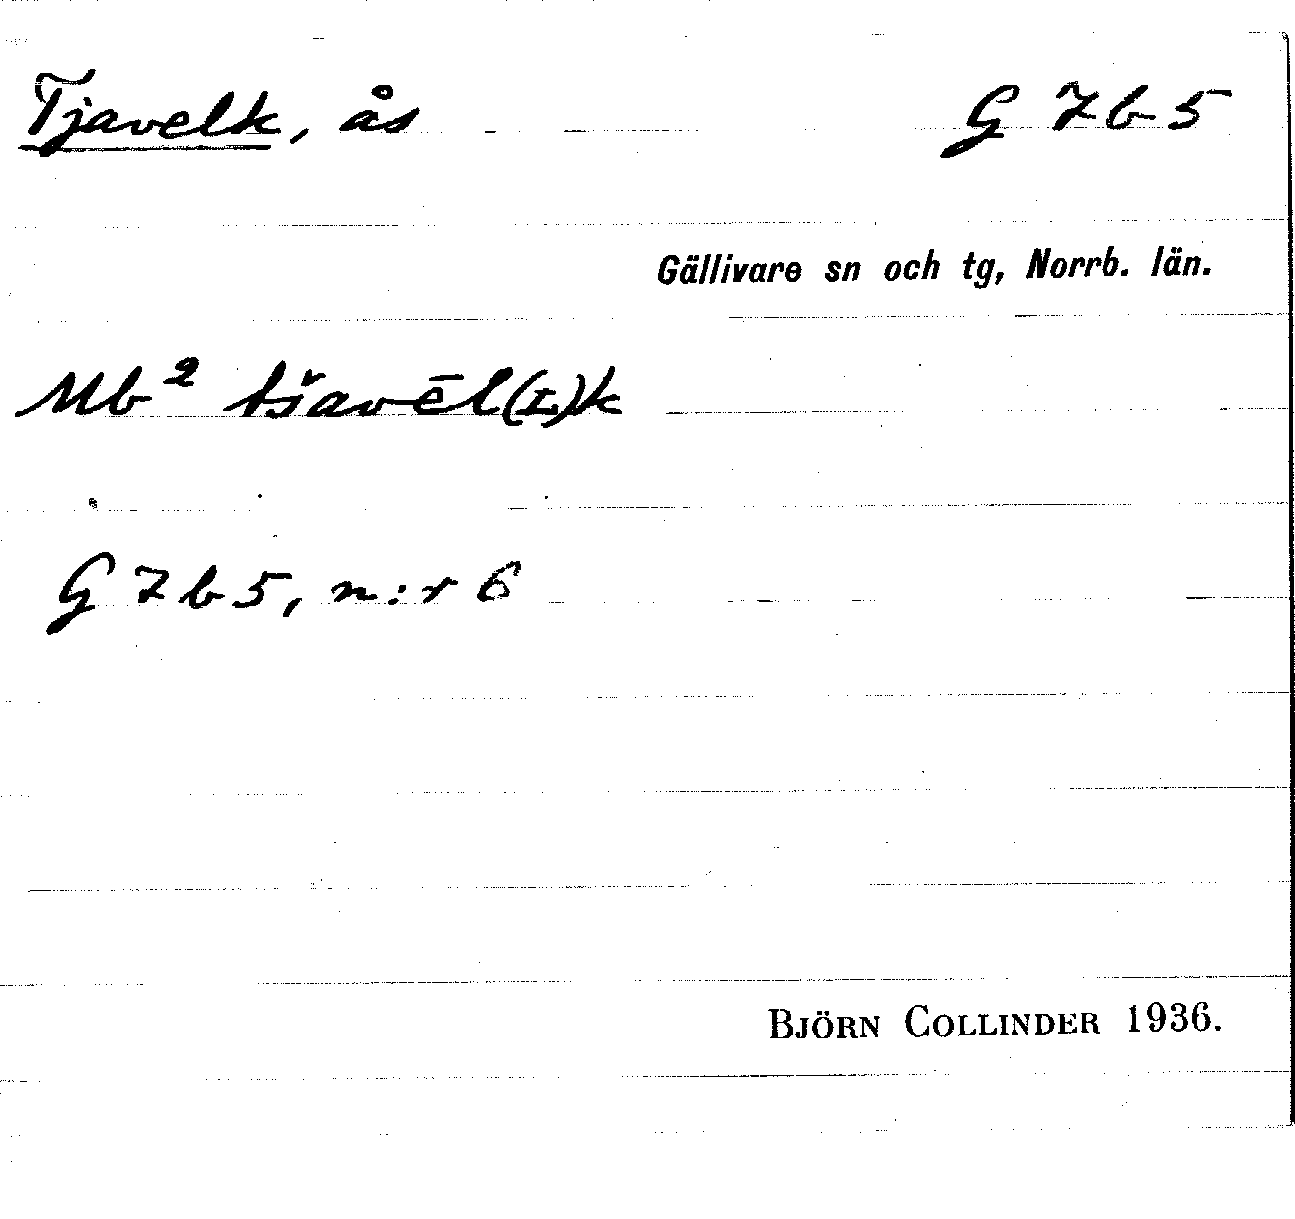 Tjavelk, ås G 7 b 5
Gällivare sn och tg, Norrb. län.
Mb² tšavēl(ʟ)k
G 7 b 5, n:r 6
BJÖRN COLLINDER 1936.